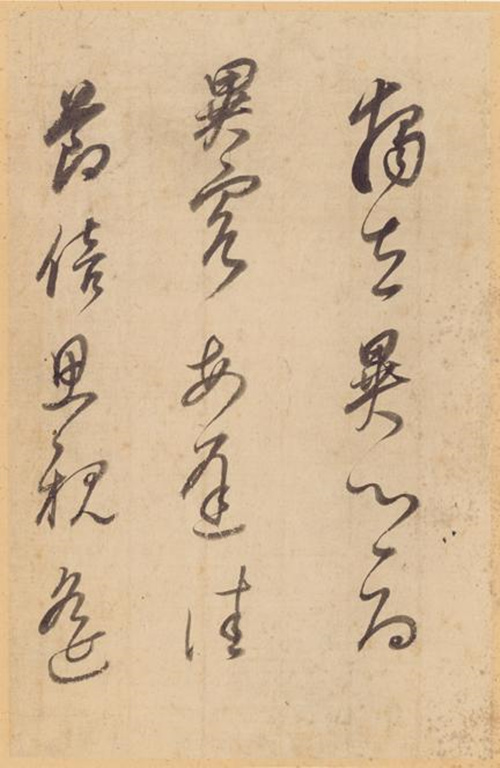 獨在異鄉為
異客每逢佳
節倍思親遙